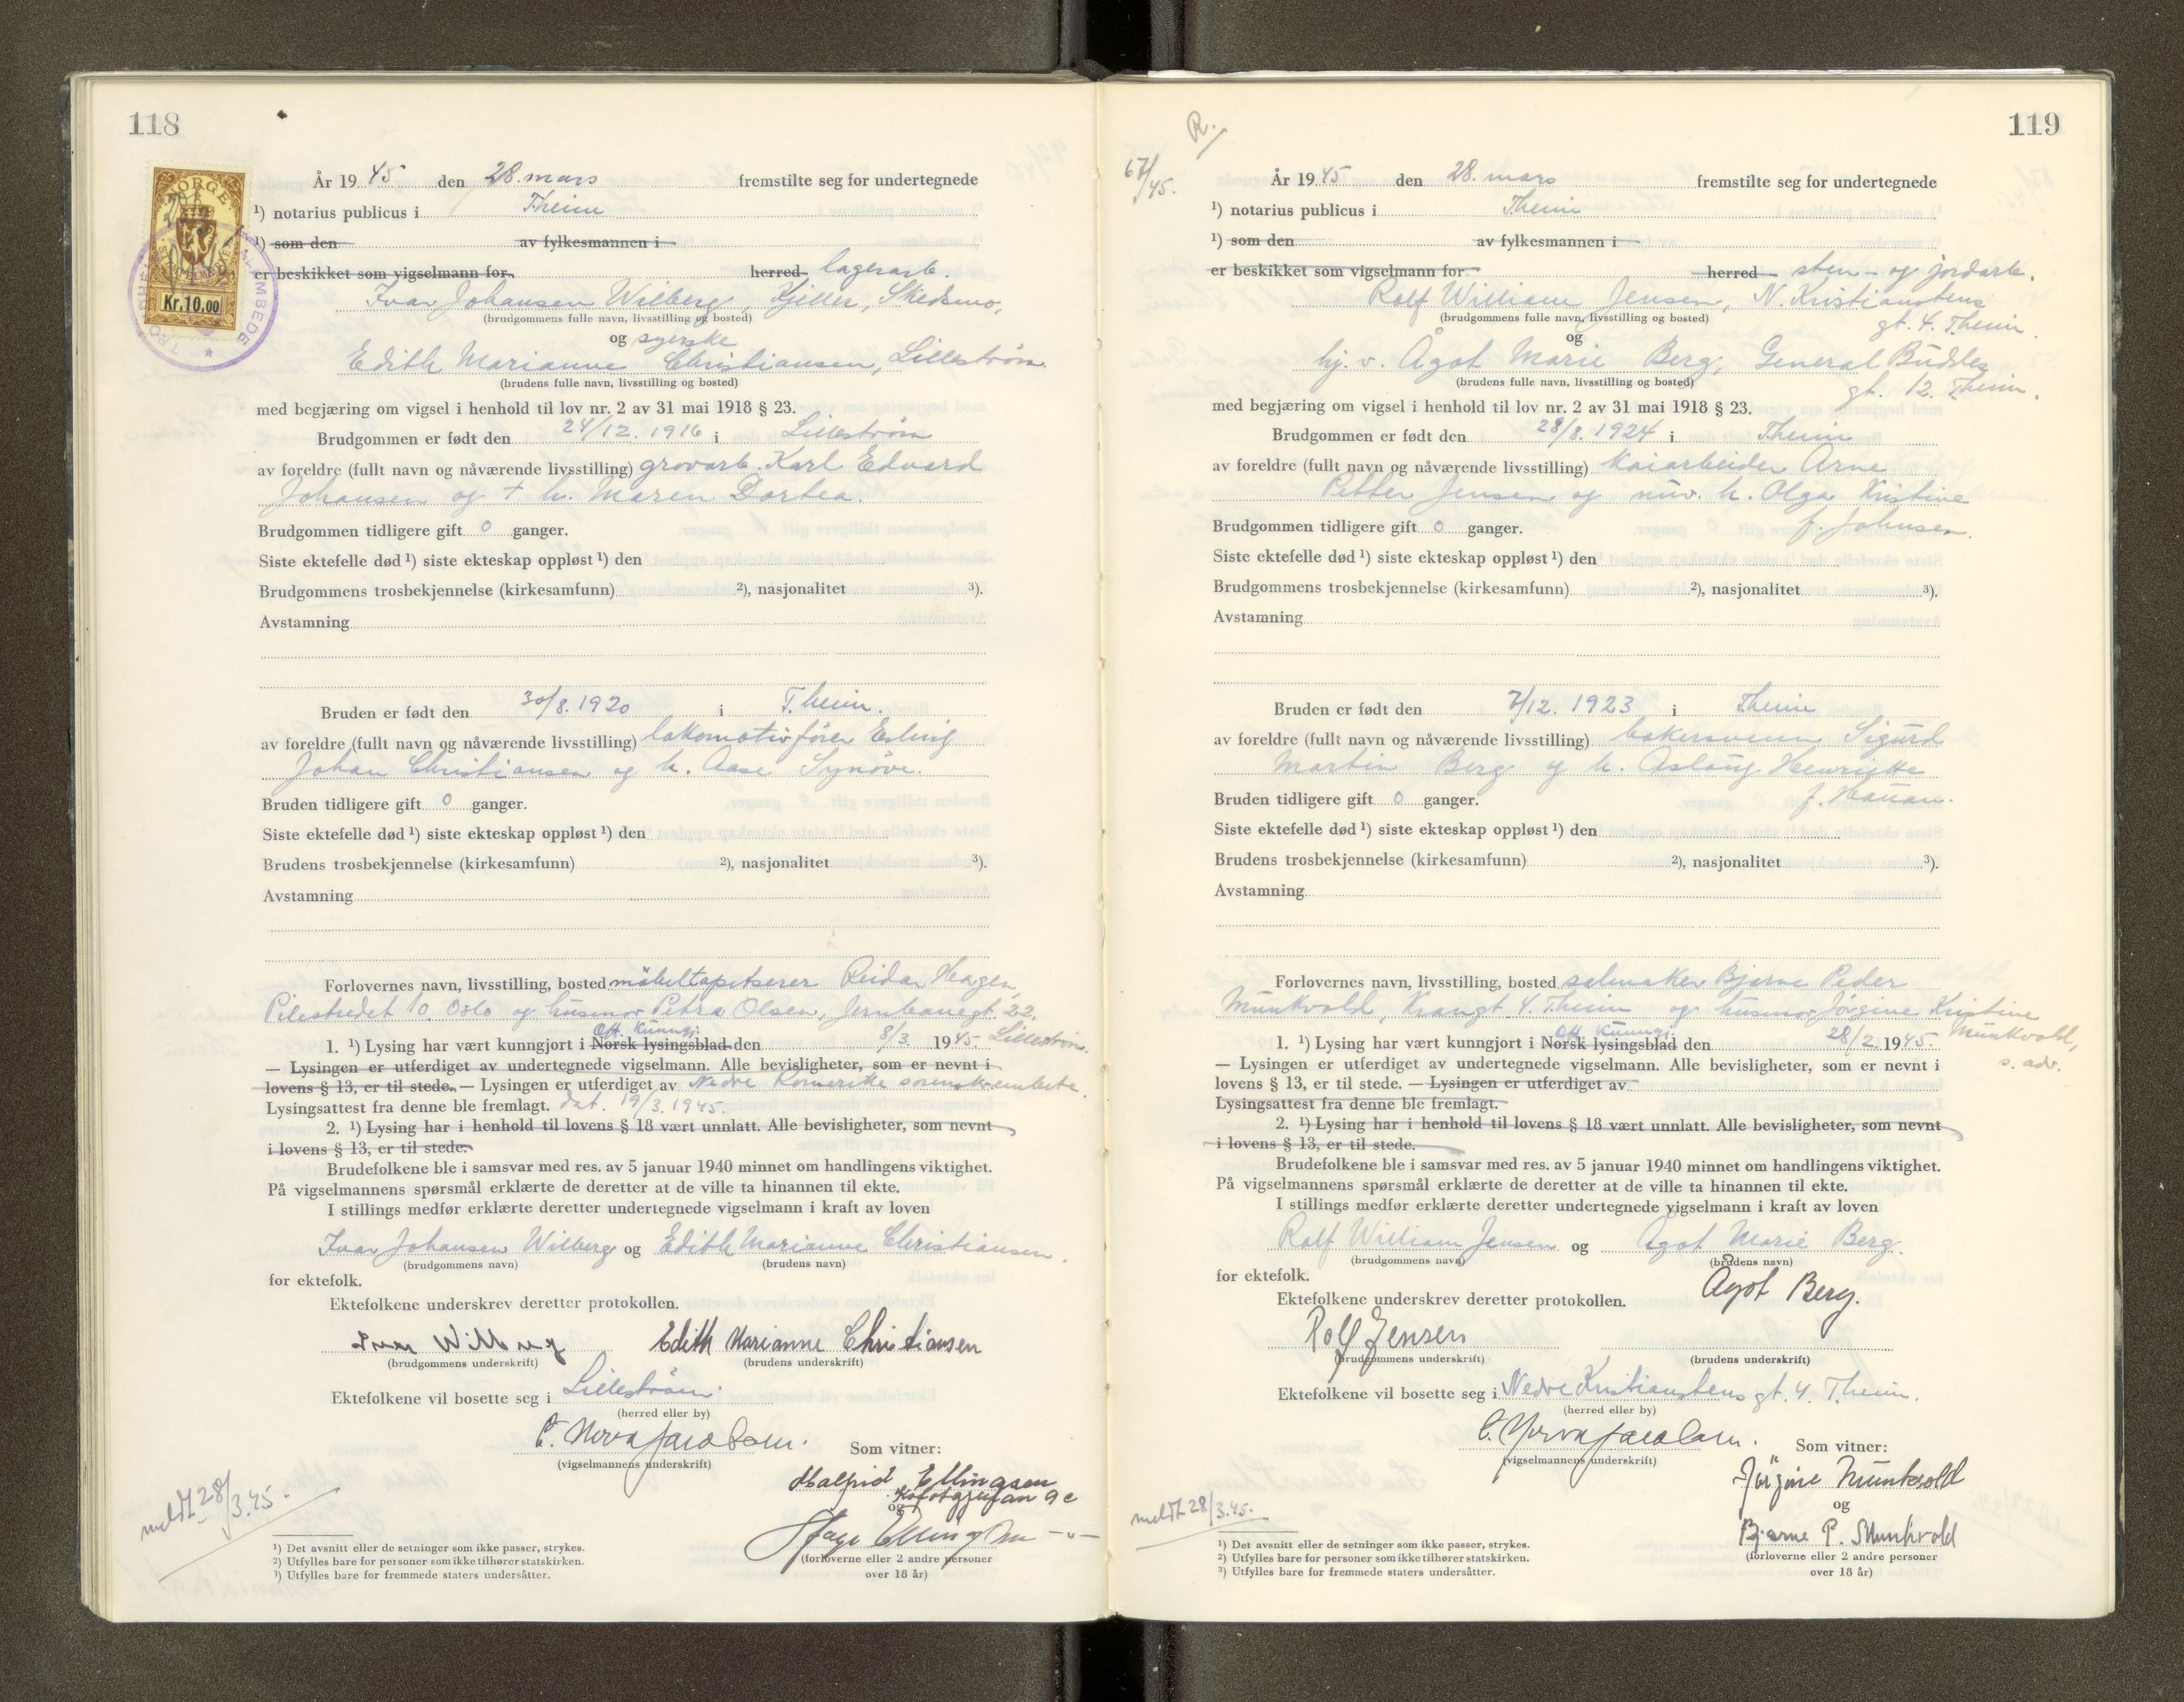 118
År 1945 den 28. mars fremstilte seg for undertegnede
¹) notarius publicus i T.heim
¹) som den av fylkesmannen i
er beskikket som vigselmann for herred lagerarb.
Ivar Johansen Wilberg, Kjeller, Skedsmo,
(brudgommens fulle navn, livsstilling og bosted)
og syerske
Edith Marianne Christiansen, Lillestrøm.
(brudens fulle navn, livsstilling og bosted)
med begjæring om vigsel i henhold til lov nr. 2 av 31 mai 1918 § 23.
Brudgommen er født den 24/12. 1916 i Lillestrøm
av foreldre (fullt navn og nåværende livsstilling) grovarb. Karl Edvard
Johansen og + h. Maren Dortea.
Brudgommen tidligere gift 0 ganger.
Siste ektefelle død ¹) siste ekteskap oppløst ¹) den
Brudgommens trosbekjennelse (kirkesamfunn) ²), nasjonalitet ³).
Avstamning
Bruden er født den 30/8. 1920 i T.heim.
av foreldre (fullt navn og nåværende livsstilling) lokomotivfører Erling
Johan Christiansen og h. Aase Synøve.
Bruden tidligere gift 0 ganger.
Siste ektefelle død ¹) siste ekteskap oppløst ¹) den
Brudens trosbekjennelse (kirkesamfunn) ²), nasjonalitet ³).
Avstamning
Forlovernes navn, livsstilling, bosted møbeltapetserer Reidar Hagen,
Pilestredet 10. Oslo og husmor Petra Olsen, Jernbanegt. 22.
Off. Kunngj.
1. ¹) Lysing har vært kunngjort i Norsk lysingsblad den 8/3. 1945. Lillestrøm.
— Lysingen er utferdiget av undertegnede vigselmann. Alle bevisligheter, som er nevnt i
lovens § 13, er til stede. — Lysingen er utferdiget av Nedre Romerike sorenskr.embete.
Lysingsattest fra denne ble fremlagt. dat. 19/3. 1945.
2. ¹) Lysing har i henhold til lovens § 18 vært unnlatt. Alle bevisligheter, som nevnt
i lovens § 13, er til stede.
Brudefolkene ble i samsvar med res. av 5 januar 1940 minnet om handlingens viktighet.
På vigselmannens spørsmål erklærte de deretter at de ville ta hinannen til ekte.
I stillings medfør erklærte deretter undertegnede vigselmann i kraft av loven
Ivar Johansen Wilberg og Edith Marianne Christiansen.
(brudgommens navn) (brudens navn)
for ektefolk.
Ektefolkene underskrev deretter protokollen.
Ivar Wilberg Edith Marianne Christiansen
(brudgommens underskrift) (brudens underskrift)
Ektefolkene vil bosette seg i Lillestrøm.
(herred eller by)
Som vitner:
(vigselmannens underskrift)
Ellingsen
og
(forloverne eller 2 andre personer
over 18 år)
meldt 28/3.45.
¹) Det avsnitt eller de setninger som ikke passer, strykes.
²) Utfylles bare for personer som ikke tilhører statskirken.
³) Utfylles bare for fremmede staters undersåtter.
NORGE
Kr.10.00
119
R.
67/45.
År 1945 den 28. mars fremstilte seg for undertegnede
¹) notarius publicus i T.heim
¹) som den av fylkesmannen i
er beskikket som vigselmann for herred sten- og jordarb.
Rolf William Jensen, N. Kristianstens
(brudgommens fulle navn, livsstilling og bosted) gt. 4. T.heim.
og
hj. v. Ågot Marie Berg, General Budsles
(brudens fulle navn, livsstilling og bosted) gt. 12. T.heim.
med begjæring om vigsel i henhold til lov nr. 2 av 31 mai 1918 § 23.
Brudgommen er født den 28/8. 1924 i T.heim
av foreldre (fullt navn og nåværende livsstilling) kaiarbeider Arne
Petter Jensen og nuv. h. Olga Kristine
f. Johnsen.
Brudgommen tidligere gift 0 ganger.
Siste ektefelle død ¹) siste ekteskap oppløst ¹) den
Brudgommens trosbekjennelse (kirkesamfunn) ²), nasjonalitet ³).
Avstamning
Bruden er født den 7/12. 1923 i T.heim
av foreldre (fullt navn og nåværende livsstilling) bakersvenn Sigurd
Martin Berg og h. Aslaug Henriette
f. Hauan.
Bruden tidligere gift 0 ganger.
Siste ektefelle død ¹) siste ekteskap oppløst ¹) den
Brudens trosbekjennelse (kirkesamfunn) ²), nasjonalitet ³).
Avstamning
Forlovernes navn, livsstilling, bosted salmaker Bjarne Peder
Munkvold, Krangt. 4. T.heim og husmor Jørgine Kristine
Munkvold,
s. adr.
Off. Kunngj.
1. ¹) Lysing har vært kunngjort i Norsk lysingsblad den 28/2. 1945.
— Lysingen er utferdiget av undertegnede vigselmann. Alle bevisligheter, som er nevnt i
lovens § 13, er til stede. — Lysingen er utferdiget av
Lysingsattest fra denne ble fremlagt.
2. ¹) Lysing har i henhold til lovens § 18 vært unnlatt. Alle bevisligheter, som nevnt
i lovens § 13, er til stede.
Brudefolkene ble i samsvar med res. av 5 januar 1940 minnet om handlingens viktighet.
På vigselmannens spørsmål erklærte de deretter at de ville ta hinannen til ekte.
I stillings medfør erklærte deretter undertegnede vigselmann i kraft av loven
Rolf William Jensen og Ågot Marie Berg.
(brudgommens navn) (brudens navn)
for ektefolk.
Ektefolkene underskrev deretter protokollen. Ågot Berg.
Rolf Jensen
(brudgommens underskrift) (brudens underskrift)
Ektefolkene vil bosette seg i Nedre Kristianstens gt. 4. T.heim.
(herred eller by)
Som vitner:
(vigselmannens underskrift)
Jørgine Munkvold
og
Bjarne P. Munkvold
(forloverne eller 2 andre personer
over 18 år)
meldt 28/3.45.
¹) Det avsnitt eller de setninger som ikke passer, strykes.
²) Utfylles bare for personer som ikke tilhører statskirken.
³) Utfylles bare for fremmede staters undersåtter.